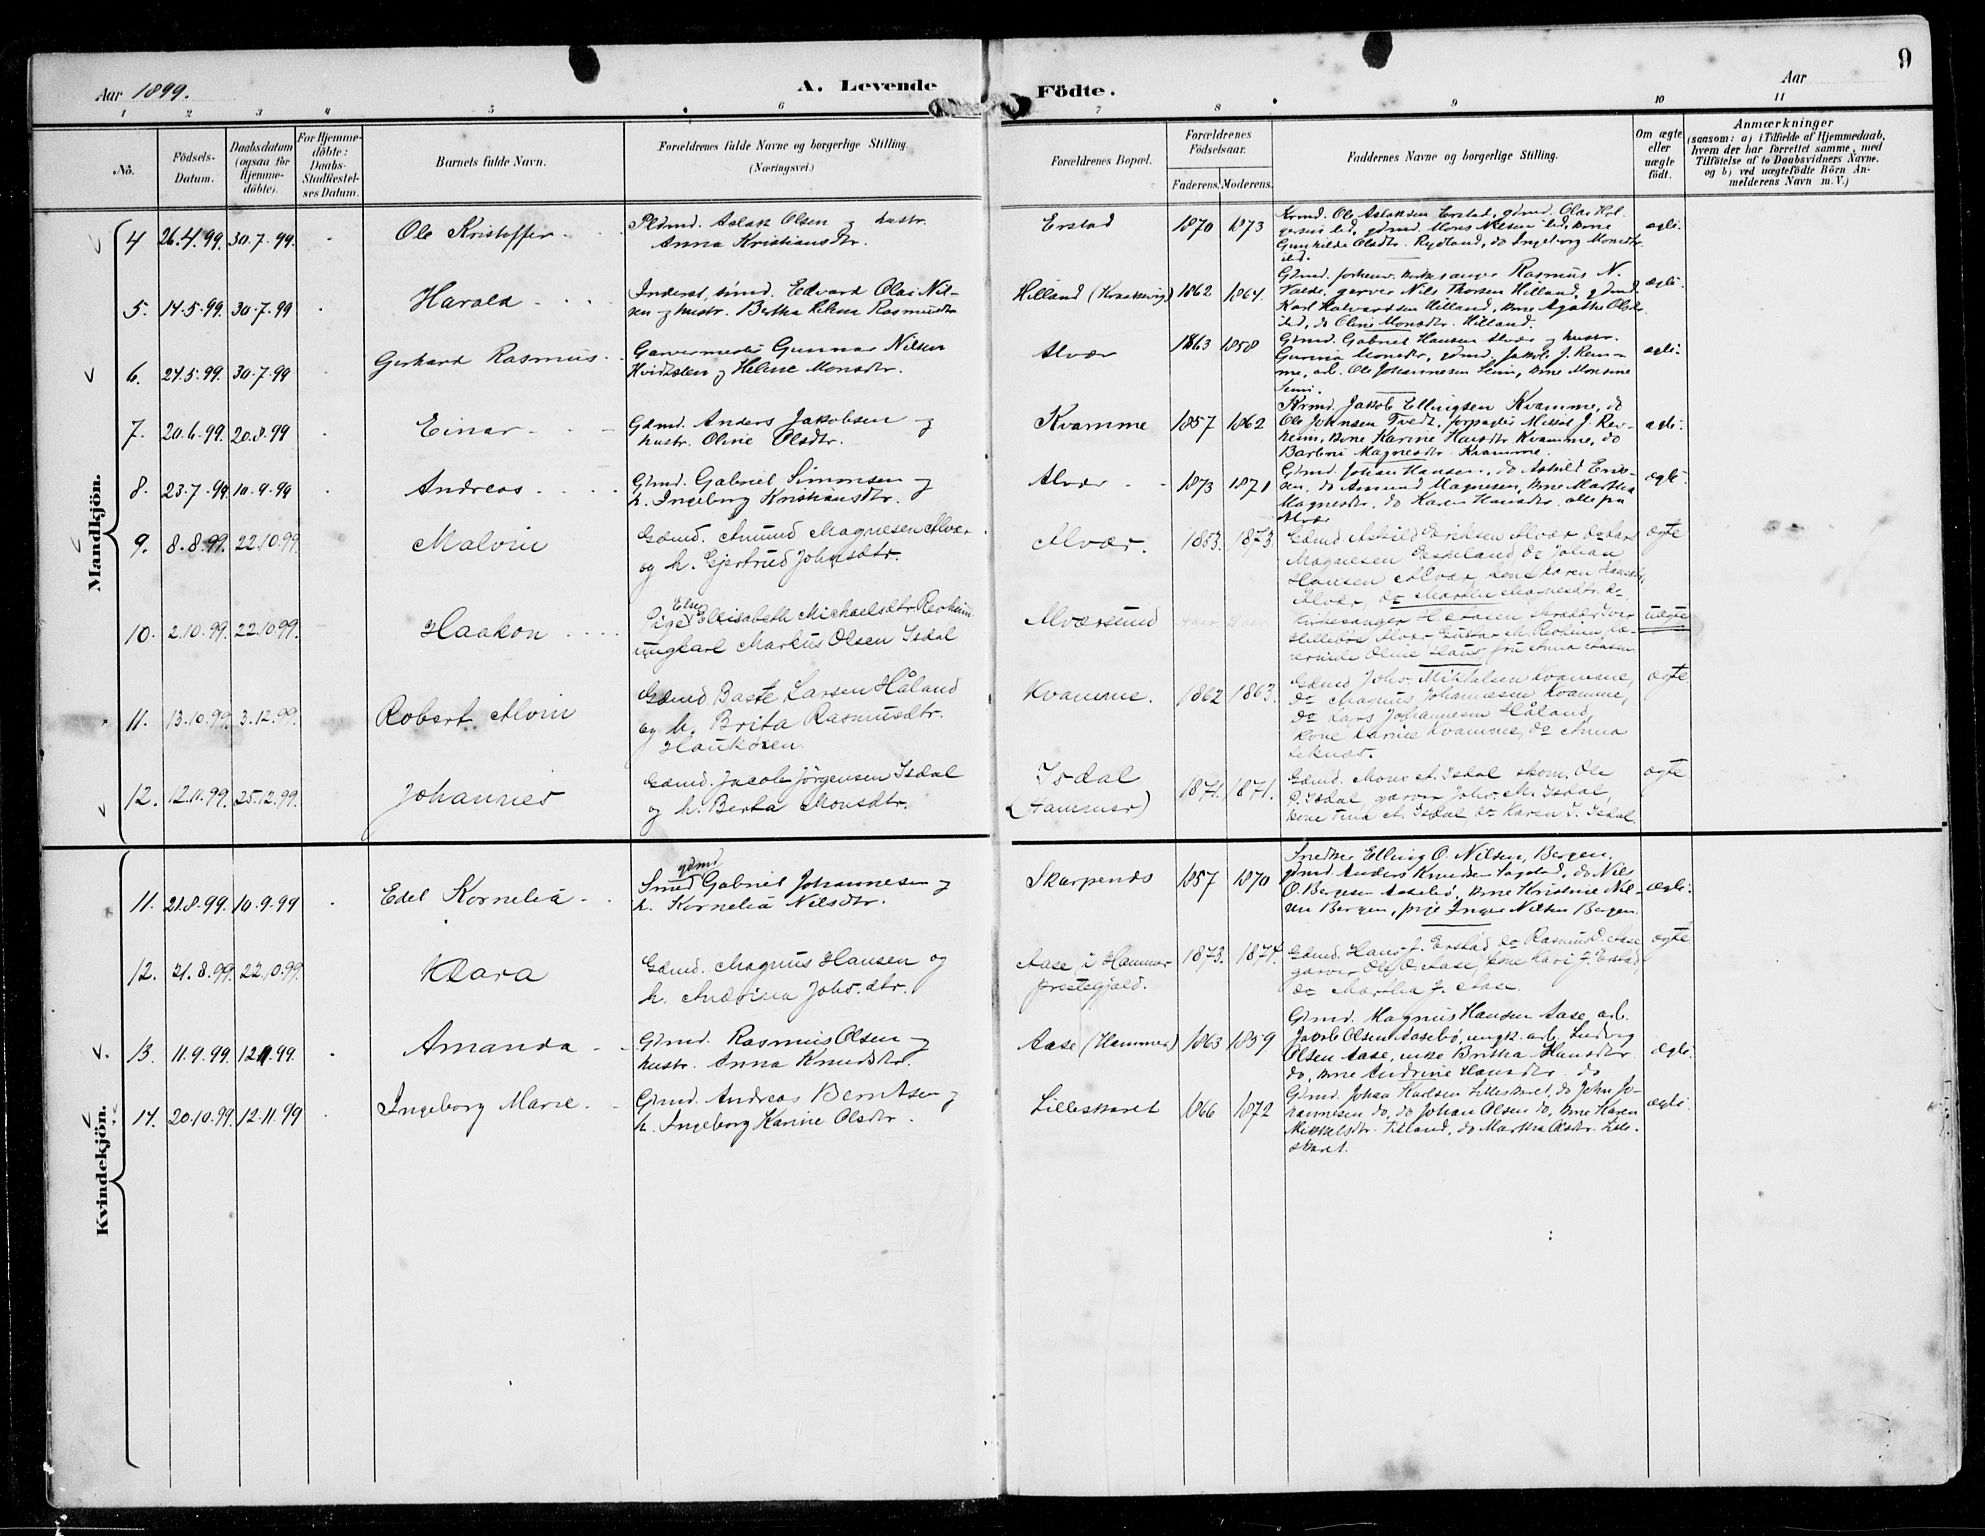 9
Aar 1899.
A. Levende Födte.
Aar
1 2 3 4 5 6 7 8 9 10 11
No.
Födsels-Datum.
Daabsdatum (ogsaa for Hjemmedöbte).
For Hjemmedöbte: Daabs-Stadfæstelses Datum.
Barnets fulde Navn.
Forældrenes fulde Navne og borgerlige Stilling.
(Næringsvei.)
Forældrenes Bopæl.
Forældrenes Födselsaar.
Faderens. Moderens.
Faddernes Navne og borgerlige Stilling.
Om ægte eller uægte födt.
Anmærkninger
(saasom: a) i Tilfælde af Hjemmedaab,
hvem der har forrettet samme, med
Tilföielse af to Daabsvidners Navne.
og b) ved uægtefödte Börn An-
melderens Navn m. V.)
Mandkjön.
4 26.4.99. 30.7.99. Ole Kristoffer
Aslak Olsen og hustr.
Anna Kristiansdtr.
Erstad 1870 1873
Krmd. Ole Aslaksen Erstad, gdmd. Olai Hol-
gersen Eid, gdmd. Mons Nilsen Eid, kone
Gunhilde Olsdtr. Rydland, do Ingeborg Monsdtr.
Eid.
ægte.
5. 14.5.99. 30.7.99 Harald
Inderst, smed. Edvard Olai Nil-
sen og hustr. Bertha Rasmusdtr
Hilland 1862 1864.
Gdmd. forhenv. kirkesanger Rasmus N.
garver Nils Thorsen Hilland, gdmd
Karl Halvardsen Hilland, kone Agathe Olsdtr
Eid, do Oline Monsdtr. Hilland.
ægte.
6. 24.5.99. 30.7.99 Gerhard Rasmus
Garvermester Gunnar Nilsen
Hvidsten og Helene Monsdtr.
Alvær 1863 1858
Gdmd. Gabriel Hansen Alvær og hustr.
Monsdtr, gdmd. Jakob J. Rem-
me, arb. Ole Johannesen Seim, kone Monsine
Seim.
ægte.
7. 20.6.99. 20.8.99 Einar
Gdmd. Anders Jakobsen og
hustr. Oline Olsdtr.
Kvamme 1857 1862
Krmd. Jakob Ellingsen Kvamme, do
Ole Johnsen Tvedt, forpagter Mikkel J. Rev-
heim, kone Karine Hansdtr. Kvamme, do
Barbro Magnesdtr. Kvamme.
ægte.
8. 23.7.99 10.9.99 Andreas
Gdmd. Gabriel Simonsen og
h. Ingeborg Kristiansdtr.
Alvær 1873 1871
Gdmd. Johan Hansen, do Askild Erik-
sen, do Amund Magnesen, kone Martha
Magnesdtr, do Karen Hansdtr. alle fra
Alvær
ægte.
9. 8.8.99. 22.10.99. Malvin
Gdmd. Amund Magnesen Alvær
og h. Gjertrud Johnsdtr.
Alvær. 1853. 1873
Gdmd Askild Eriksen Alvær do Lars
Magnesen do Johan
Hansen Alvær, kone Karen Hansdtr.
Alvær, do Martha Magnesdtr. do
ægte
10. 2.10.99. 22.10.99. Haakon
Pige Else Elisabeth Michaelsdtr Revheim
ungkarl Markus Olsen Isdal
Alværsund
Kirkesanger
Alvær Gustav M. Revheim, læ-
rerinde Oline fru Anna
uægte
11. 13.10.99. 3.12.99. Robert Alvin
Gdmd. Baste Larsen Håland
og h. Brita Rasmusdtr.
Haukåsen.
Kvamme. 1862 1863.
Gdmd. Johs. Mikkelsen Kvamme,
do Magnus Johannesen Kvamme,
do Lars Johannesen Håland,
Kone Karine Kvamme, do Anna
Leknæs.
ægte
12. 12.11.99. 25.12.99. Johannes
Gdmd. Jacob Jörgensen Isdal
og h. Berta Monsdtr.
Isdal
(Hammer)
1874. 1871.
Gdmd. Mons A. Isdal skom. Ole
P. Isdal, garver Johs. M. Isdal,
kone Tina A. Isdal, do Karen J. Isdal.
ægte
Kvindekjön.
11. 21.8.99. 10.9.99 Edel Kornelia
gdmd
Smed Gabriel Johannesen og
h. Kornelia Nilsdtr.
Skarpenes 1857 1870
Snedker Elling O. Nilsen, Bergen,
gdmd Anders Knudsen Sagstad, do Nils
O. Bergesen Aasebø, kone Kristine Nil-
sen Bergen, pige Inger Nilsen Bergen.
ægte.
12. 21.8.99. 22.10.99. Klara
Gdmd. Magnus Hansen og
h. Andrina Johs.dtr.
Aase i Hammer
prestegjeld.
1873. 1874.
Gdmd. Hans J. Erstad do Rasmus O. Aase
garver Ole O. Aase, kone Kari J. Erstad
do Martha J. Aase.
ægte
13. 11.9.99. 12.11.99. Amanda
Gdmd. Rasmus Olsen og
hustr. Anna Knudsdtr.
Aase (Hammer) 1863 1859
Gdmd. Magnus Hansen Aase arb.
Jakob Olsen Aasebø, ungk. arb. Ludvig
Olsen Aase, enke Britha Hansdtr
do, kone Andrine Hansdtr. do
ægte.
14. 20.10.99. 12.11.99 Ingeborg Marie
Gdmd. Andreas Berntsen og
h. Ingeborg Karine Olsdtr.
Lilleskaret 1866 1872
Gdmd. Johan Karlsen Lilleskaret, do John Jo-
hannesen do, do Johan Olsen do, kone Karen
Mikkelsdtr. Tilland, do Martha Olsdtr. Lille-
skaret.
ægte.